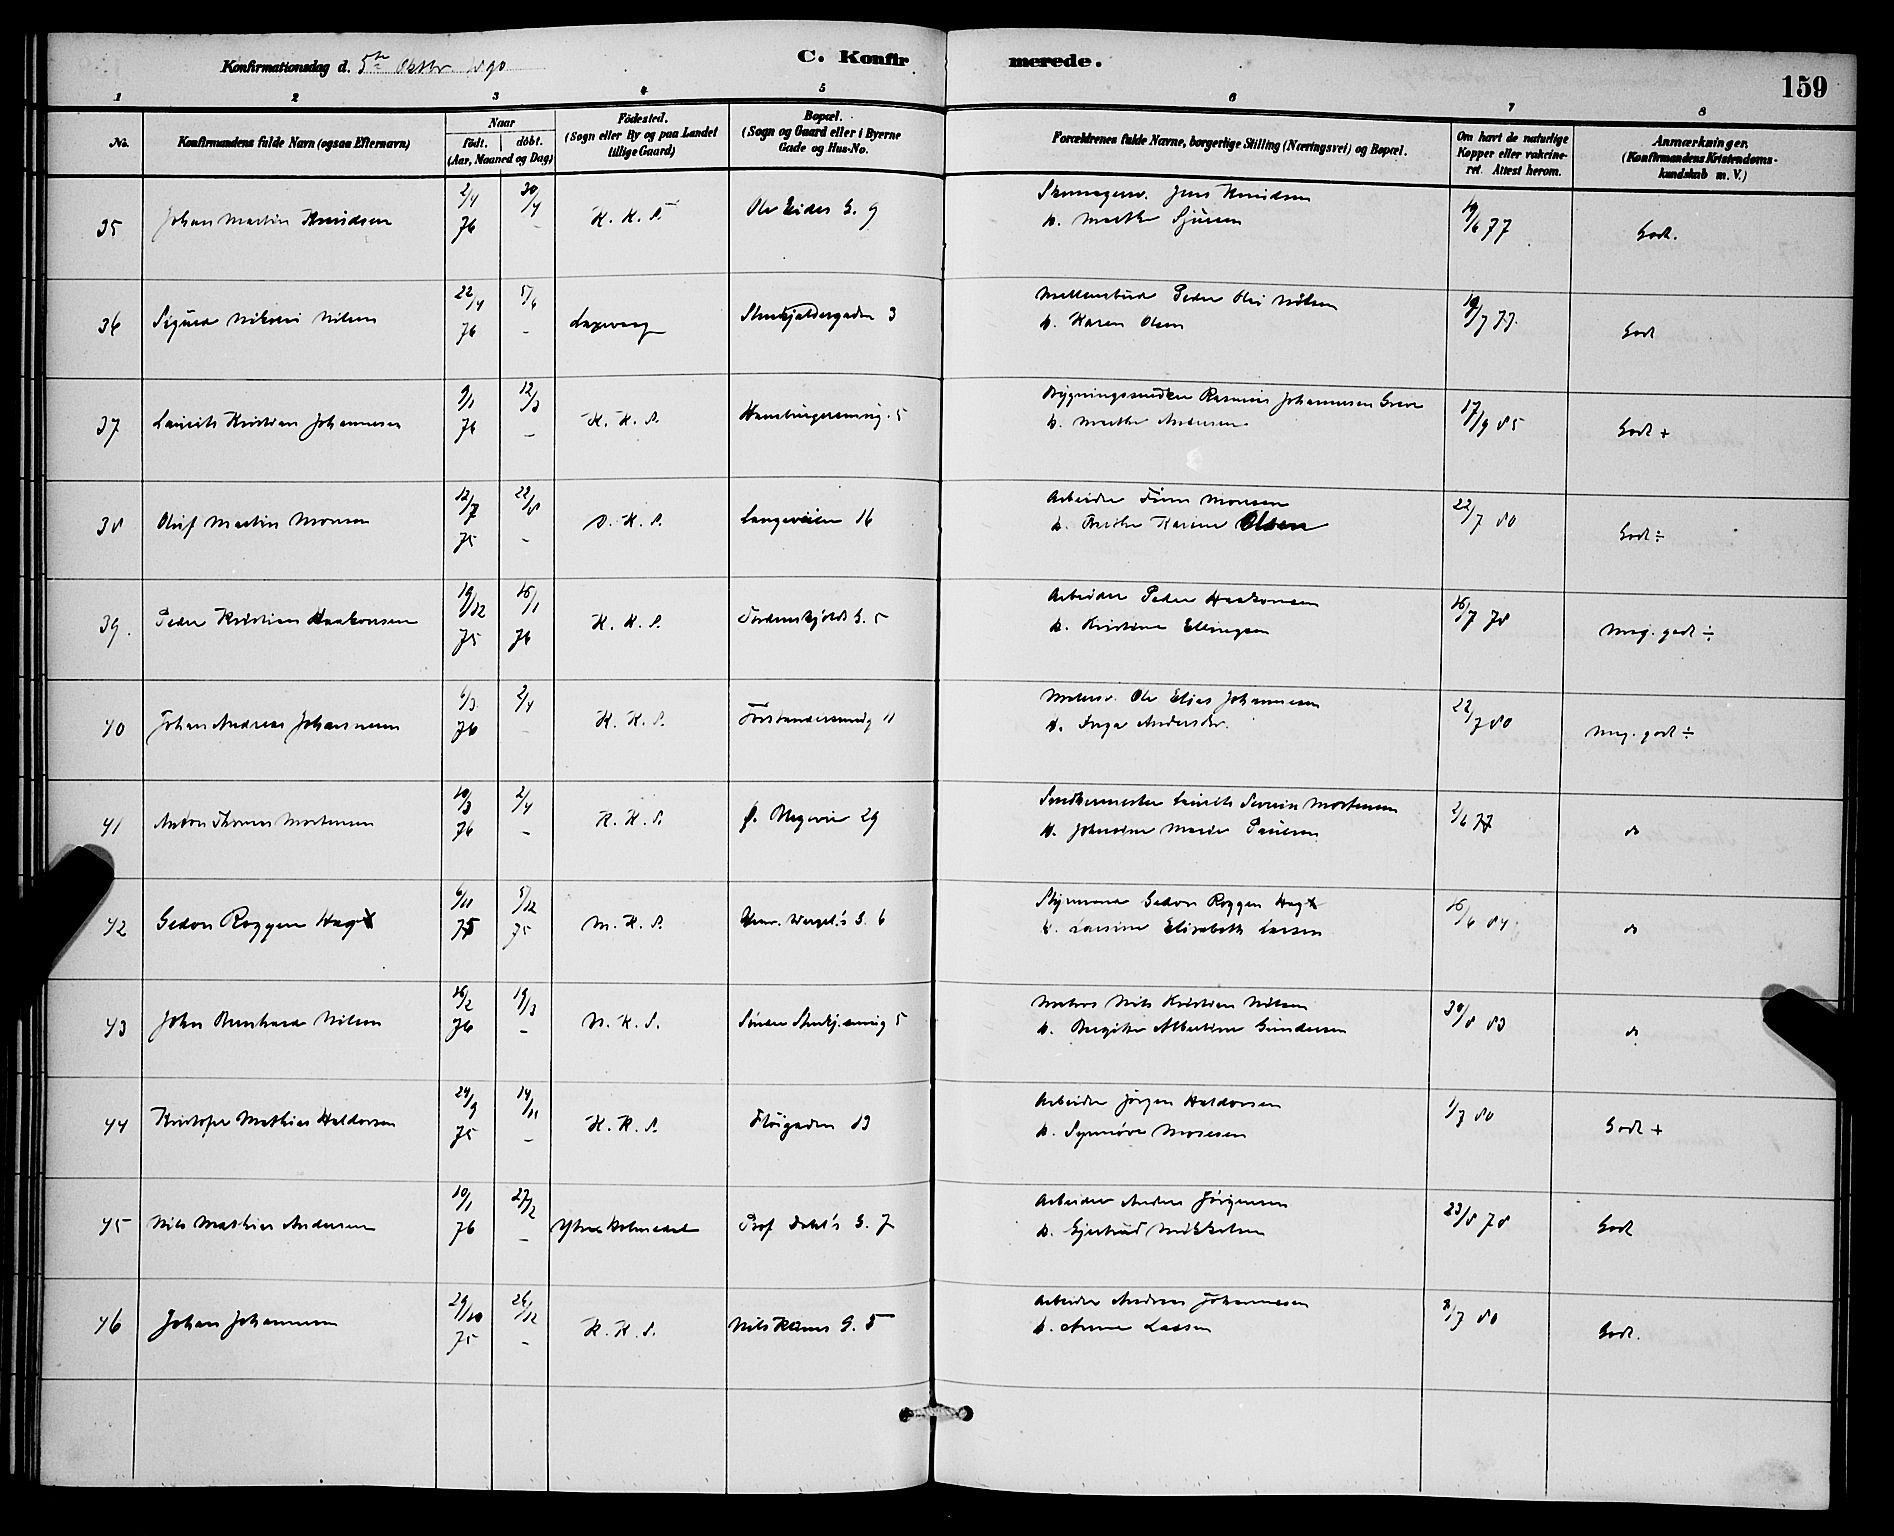 Konfirmationsdag d. 5te Oktbr 1890
C. Konfirmerede.
159
1 2 3 4 5 6 7 8
No.
Konfirmandens fulde Navn (ogsaa Efternavn)
Naar
födt. döbt.
(Aar, Maaned og Dag)
Födested.
(Sogn eller By og paa Landet
tillige Gaard)
Bopæl.
(Sogn og Gaard eller i Byerne
Gade og Hus-No.
Forældrenes fulde Navne, borgerlige Stilling (Næringsvei) og Bopæl.
Om havt de naturlige
Kopper eller vakcine-
ret. Attest herom.
Anmærkninger.
(Konfirmandens Kristendoms-
kundskab m. V.)
35 Johan Martin Knudsen 2/4 76 30/4 - K. K. S. Ole Eides G. 9 Jens Knudsen 19/6 77 Godt.
h. Marthe Sjursen
36 Sigurd Nikolai Nilsen 22/4 76 5/6 - Laxevaag 3 Peder Olai Nilsen 19/7 77. Godt
h. Karen Olsen
37 Laurits Kristian Johannesen 9/1 76 12/3 - K. K. S. Hamburgersmug. 5 Bygningssnedker Rasmus Johannesen Greve 17/9 85 Godt +
h. Marthe Andersen
38 Oluf Martin Monsen 12/7 75 22/8 - D. K. S. Langeveien 16 Arbeider Finn Monsen 22/7 80 Godt ÷
h. Karine Olsen
39. Peder Kristian Haakonsen 19/12 75 16/1 76 K. K. S. Tordenskjolds G. 5 Arbeider Peder Haakonsen 16/7 78 Meg. godt ÷
h. Kristine Ellingsen
40 Johan Andreas Johannesen 6/3 76 2/4 - K. K. S. Forstandersmug 11 Ole Elias Johannesen 22/7 80 Meg. godt ÷
h. Inga Andersdr.
41 Anton Thomas Mortensen 10/3 76 2/4 - K. K. S. Ø. 29 Snedkermester Laurits Severin Mortensen 2/6 77 do
h. Johanne Marie Paulsen
42 Gedon Roggen Hagt 6/11 75 5/12 75 N. K. S. Henr. Wergel.'s G. 6 Styrmand Gedon Roggen Hagt 16/6 84 do
h. Laurine Elisabeth Larsen
43 John Bernhard Nilsen 16/2 76 19/3 - N. K. S. Søndre 5 Matros Nils Kristian Nilsen 30/8 83 do
h. Birgitte Albertine Gundersen
44 Kristofer Mathias Haldorsen 24/9 75 14/11 - K. K. S. Fløigaden 13 Arbeider Jørgen Haldorsen 1/7 80 Godt +
h. Synnøve Mosesen
45 Nils Mathias Andersen 10/1 76 27/2 - Ytre Holmedal Prof Dahl's G. 7 Arbeider Anders Jørgensen 23/8 78 Godt
h. Gjertrud Mikkelsen
46 Johan Johannesen 29/10 75 26/12 - K. K. S. Nils Klims G. 5 Arbeider Andreas Johannesen 8/7 80 Godt.
h. Anne Larsen